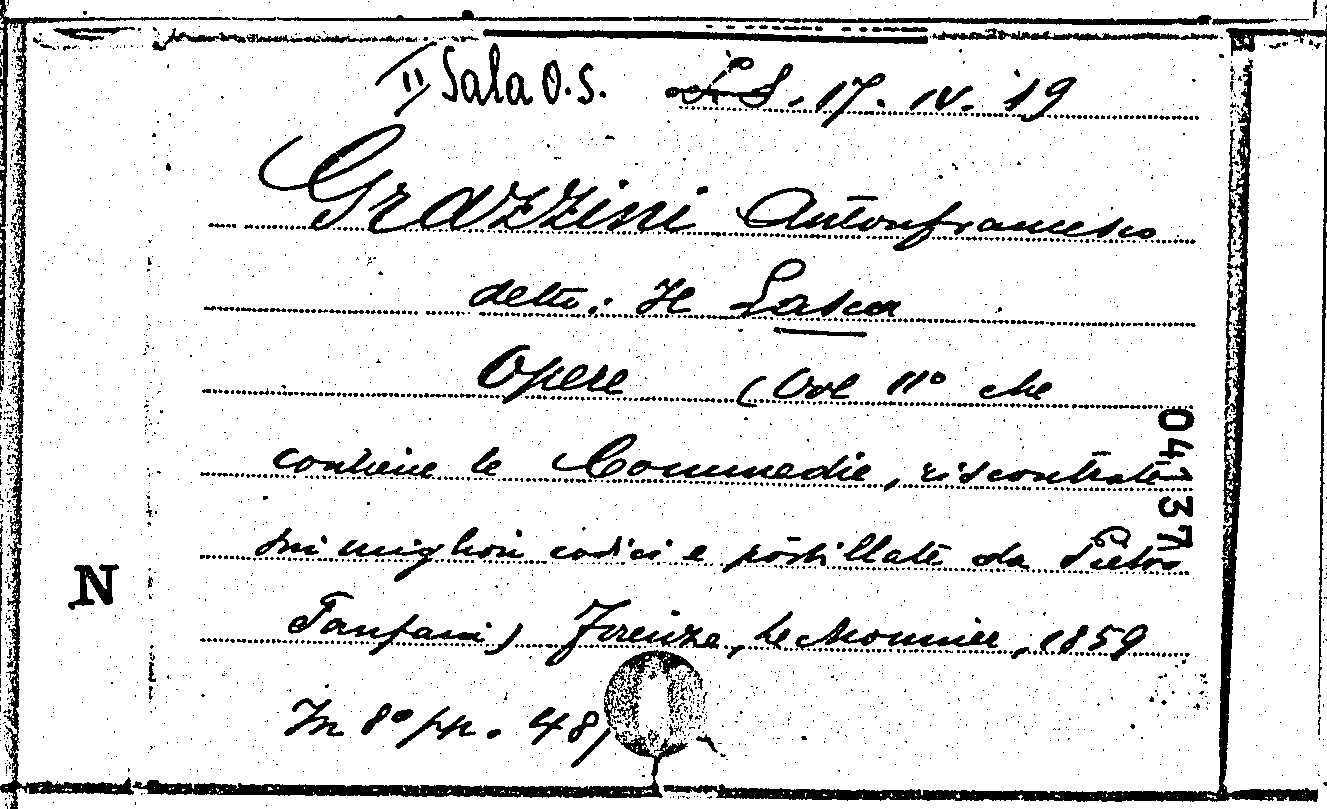 II Sala O.S. S.S. 17. IV. 19
Grazzini Antonfrancesco
detto: Il Lasca
Opere (Vol II° che
contiene le Commedie, riscontrate
sui migliori codici e postillate da Pietro
Fanfani) Firenze, Le Monnier, 1859
In 8° pp. 48
04137
N